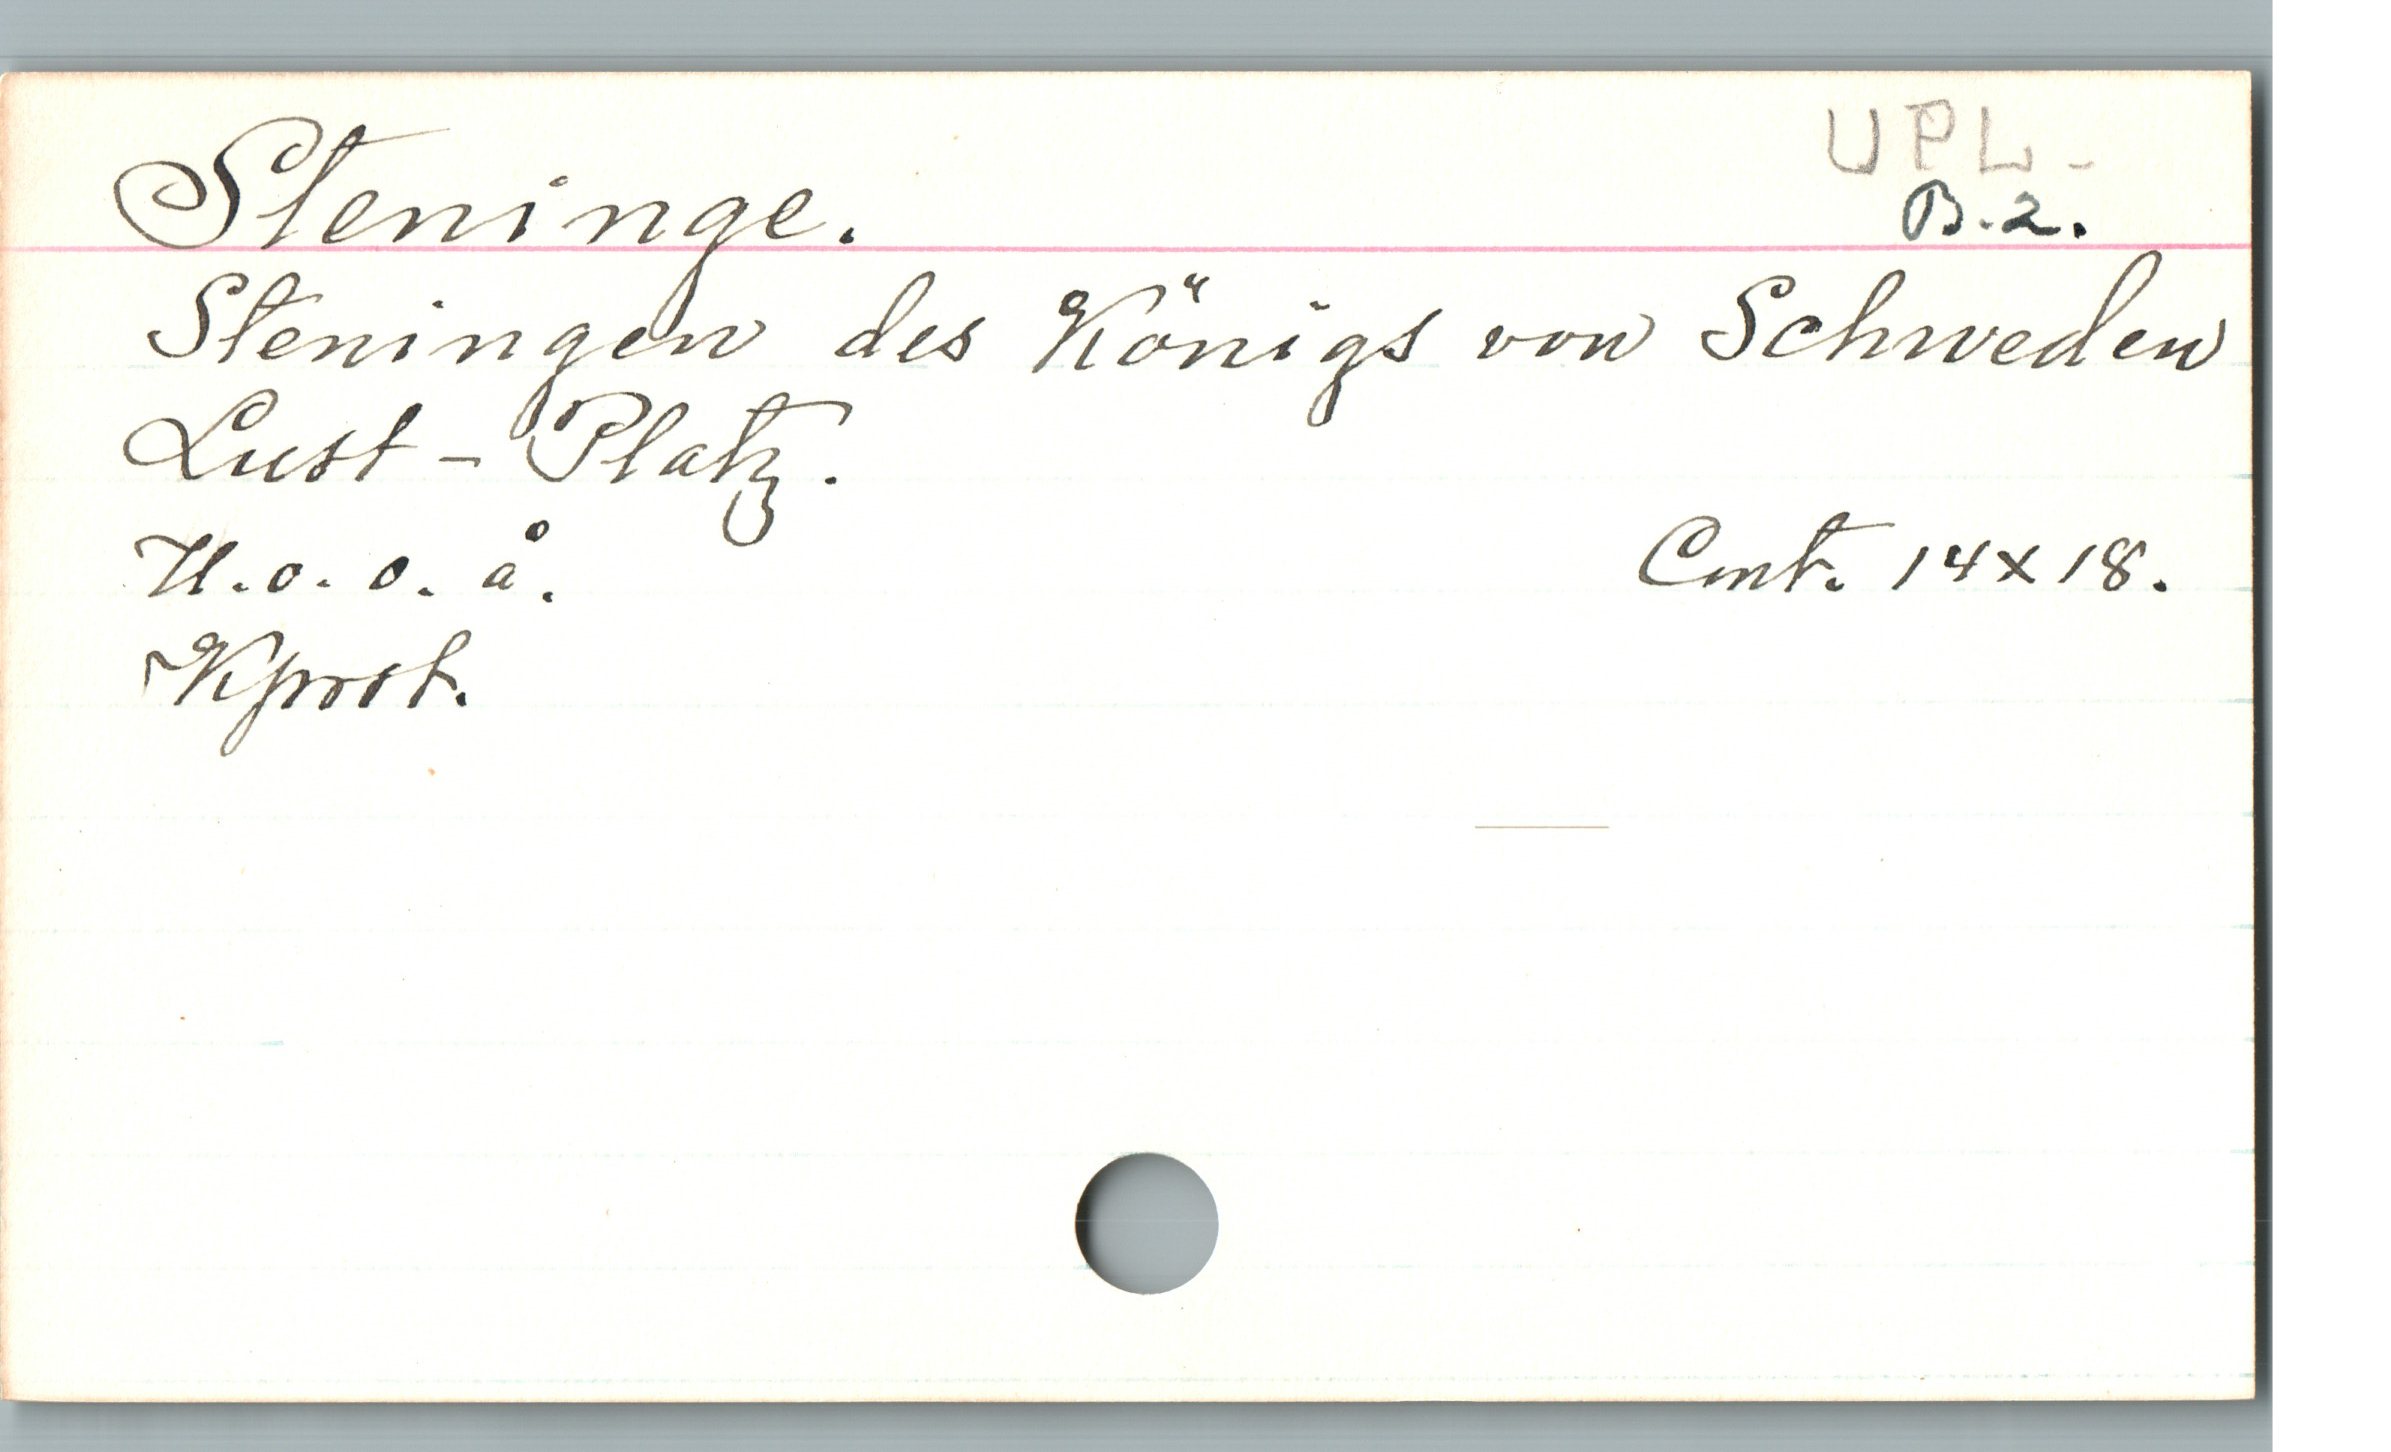 UPL-
Steninge. B.2.
Steningen des Königs von Schweden
Lust - Platz.
U.o.o.å. Cmt. 14x18.
Kprst.